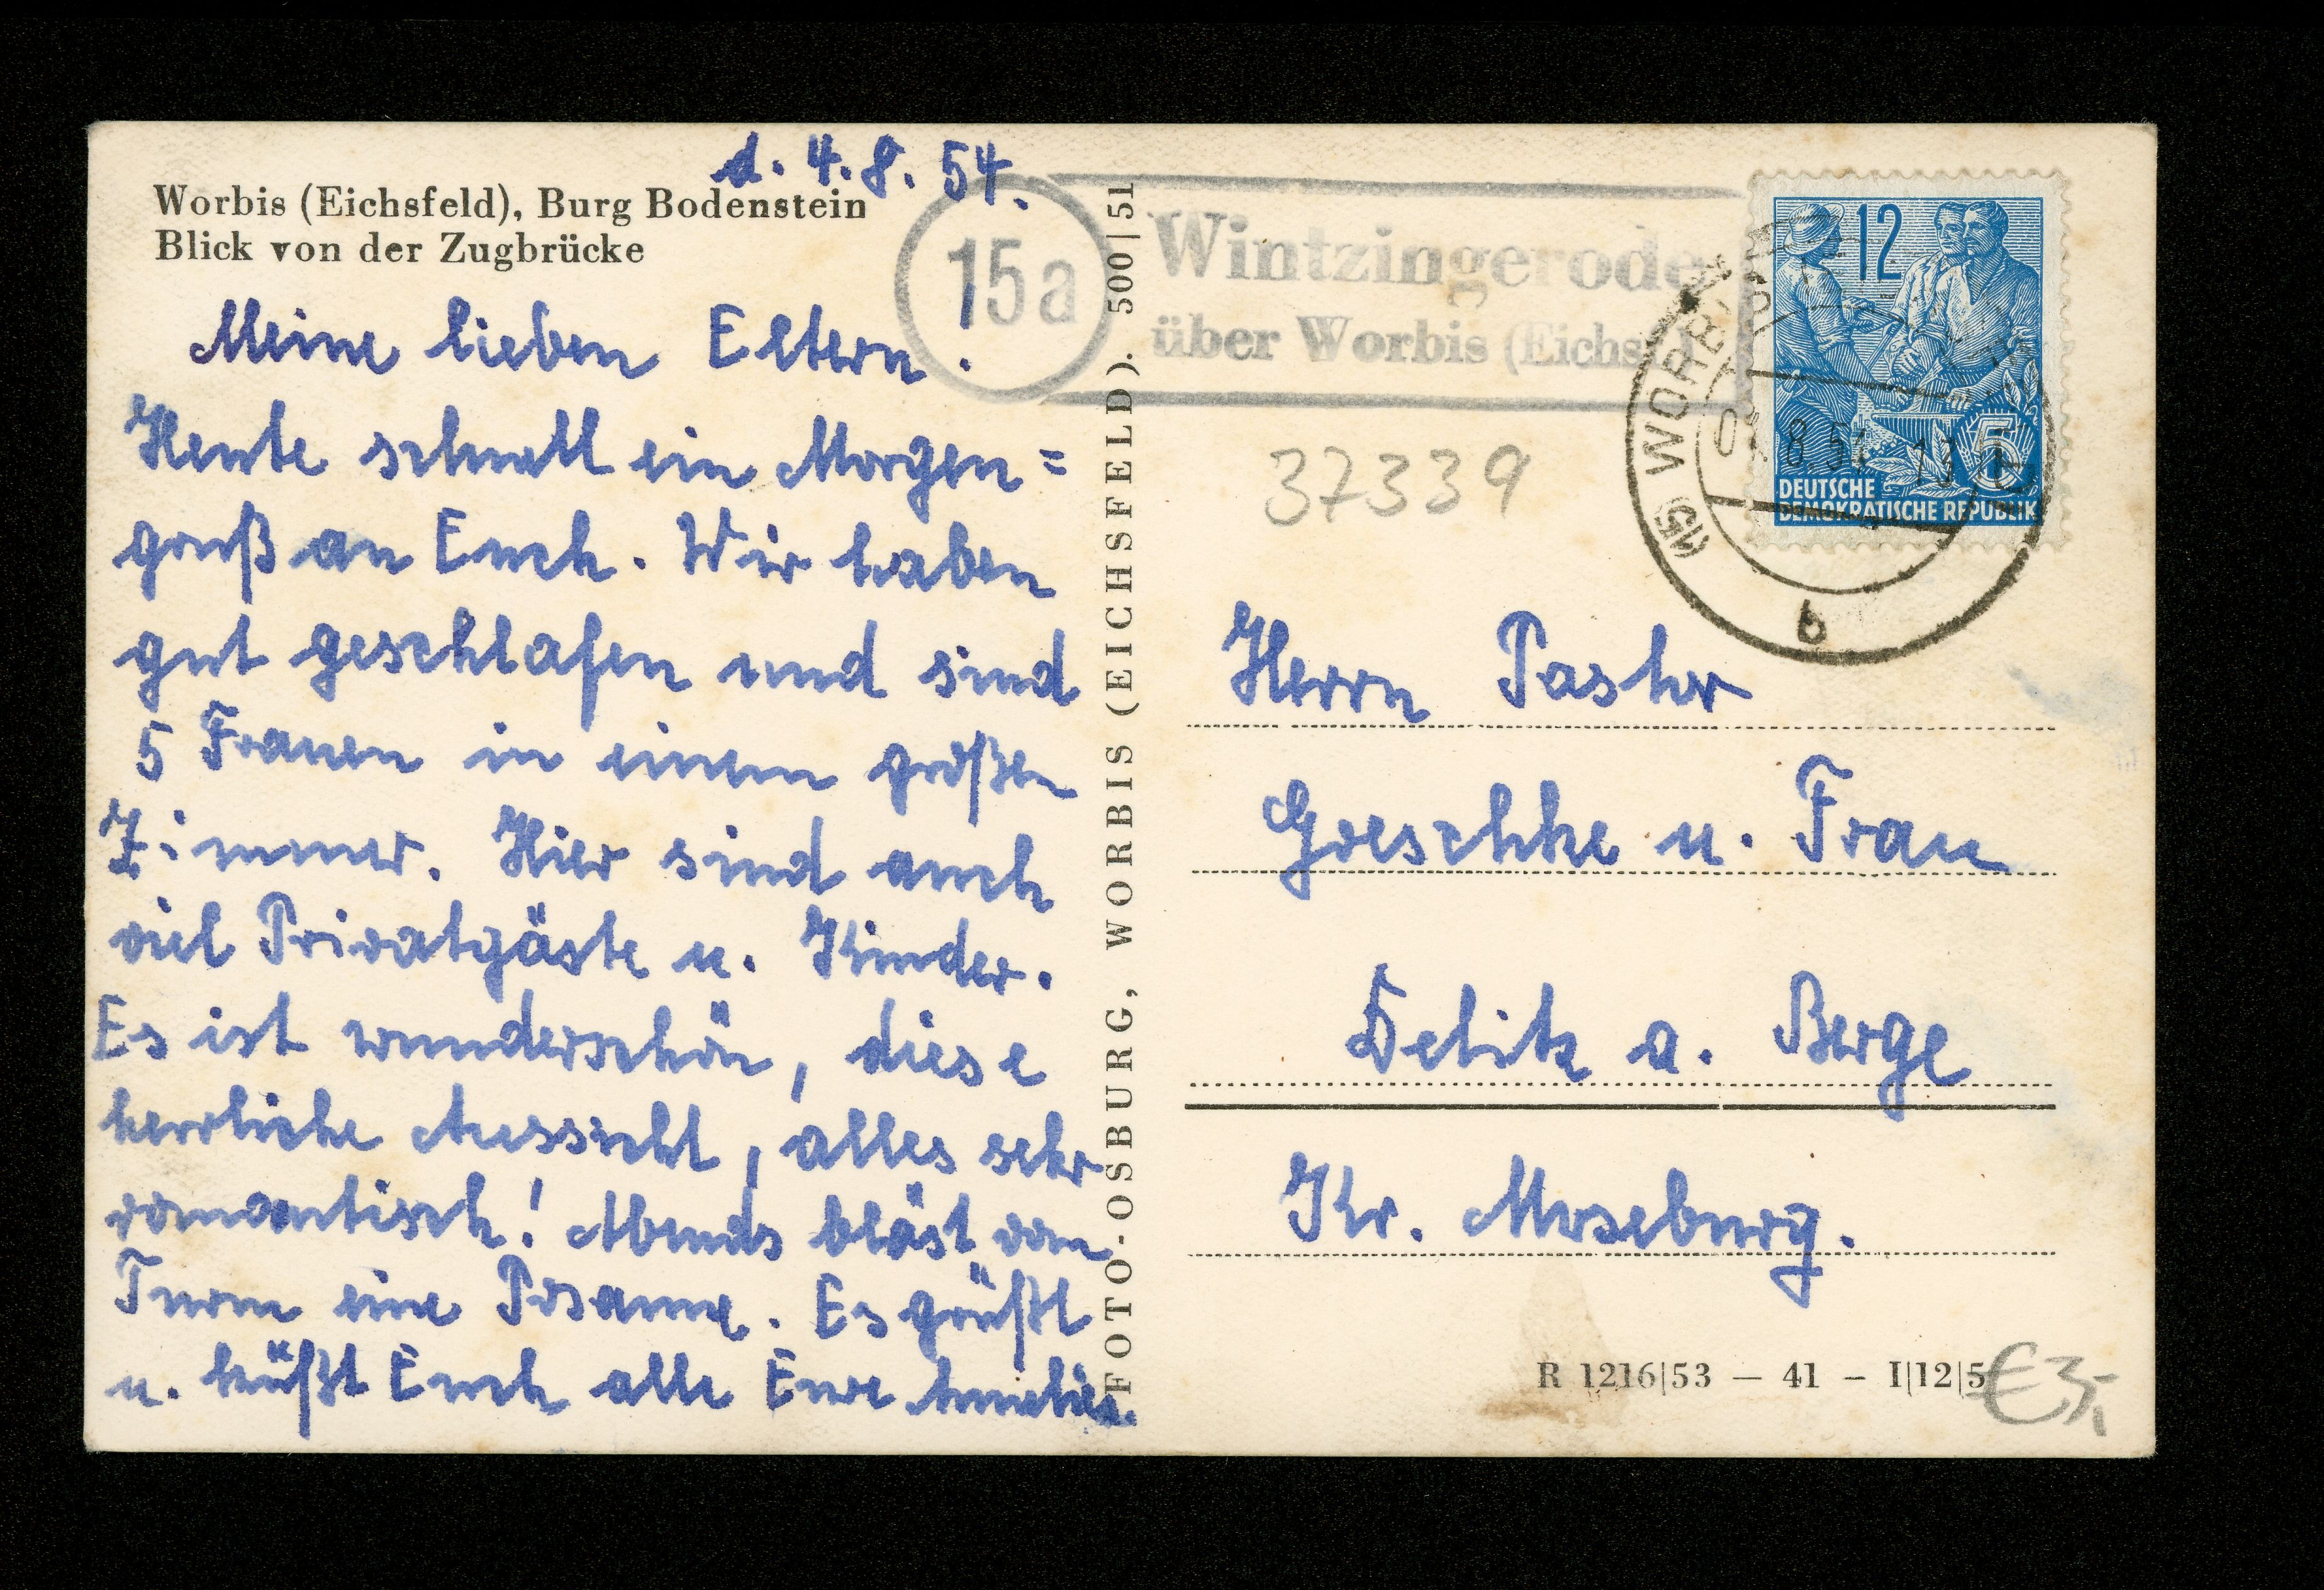 d. 4. 8. 54.
Worbis (Eichsfeld), Burg Bodenstein
Blick von der Zugbrücke
Meine lieben Eltern!
Heute schnell ein Morgen=
gruß an Euch. Wir haben
gut geschlafen und sind
5 Frauen in einem großen
Zimmer. Hier sind auch
viel Privatgäste u. Kinder.
Es ist wunderschön, diese
herrliche Aussicht, alles sehr
romantisch! Abends bläst vom
Turm eine Posaune. Es grüßt
u. küßt Euch alle Eure Annelies.
FOTO-OSBURG, WORBIS (EICHSFELD). 500|51
15a
Wintzingerode
über Worbis (Eichsf.)
12
5
DEUTSCHE
DEMOKRATISCHE REPUBLIK
(15) WORBIS
8.54
b
37339
Herrn Pastor
Goeschke u. Frau
Delitz a. Berge
Kr. Merseburg.
R 1216|53 — 41 — I|12|5
€3,-